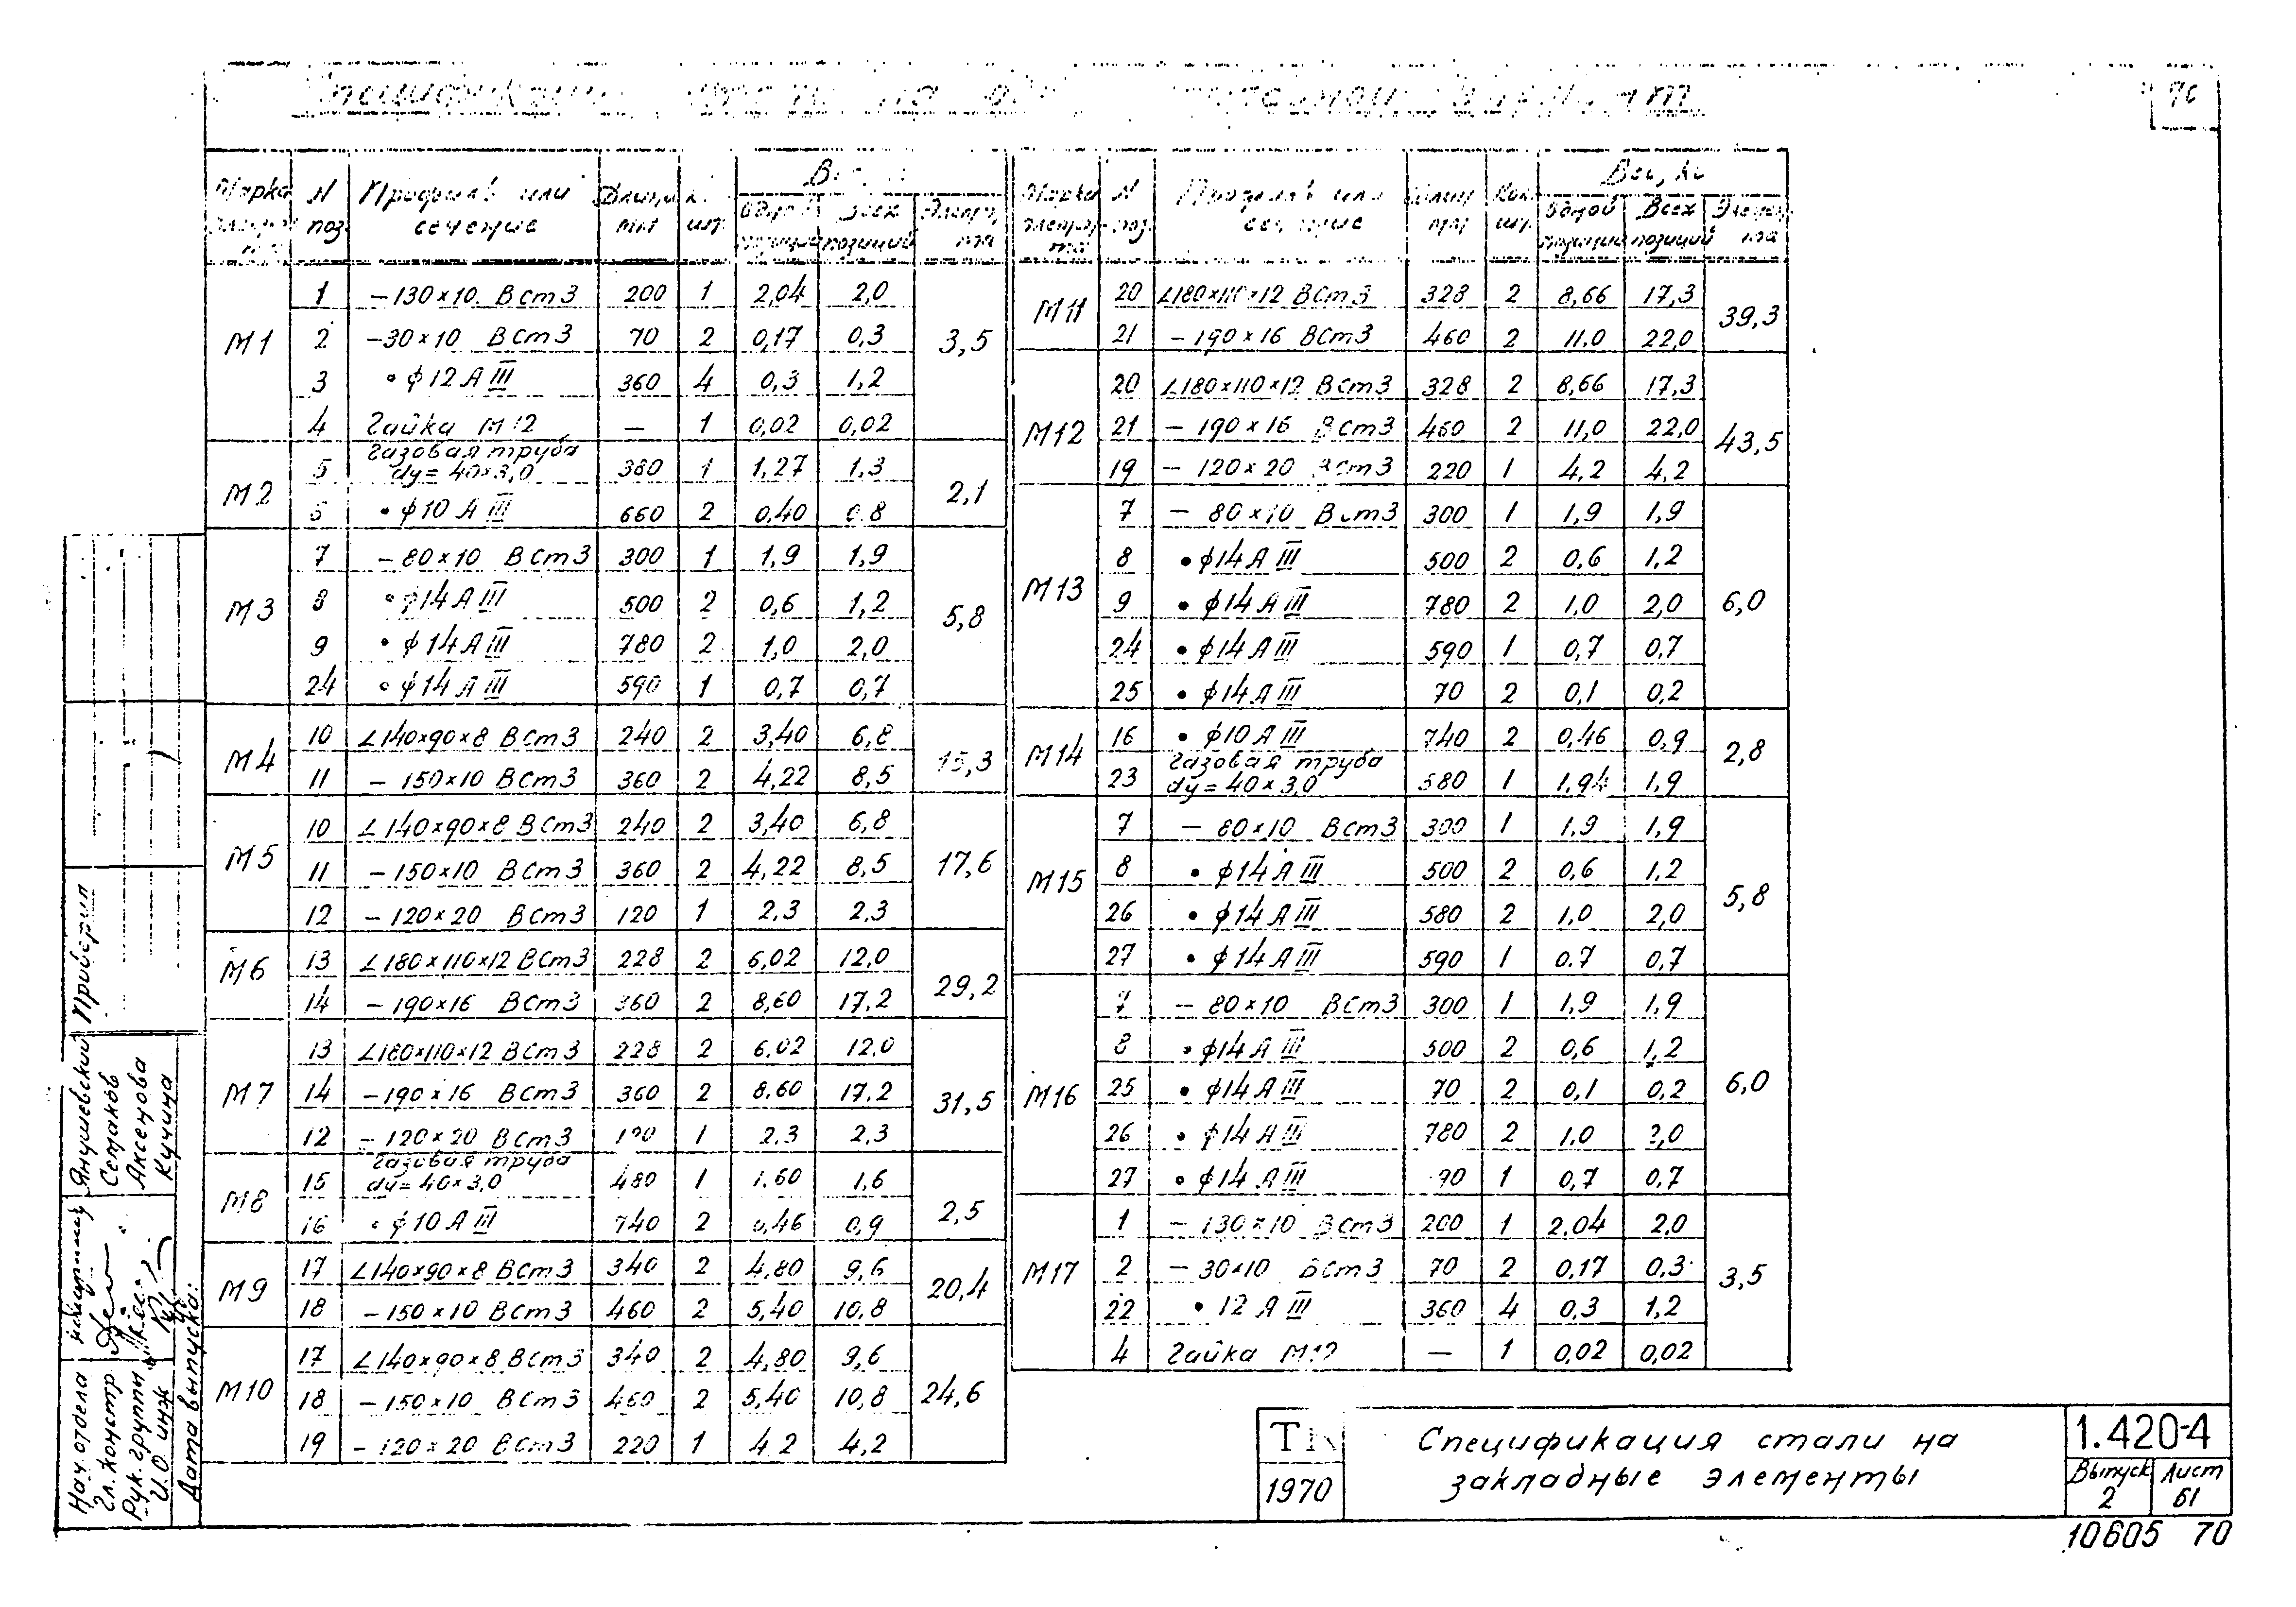 Марка элемента | N поз. | Профиль или сечение | Длина мм | шт. | одной позиции | всех позиций | Элемента
М1 | 1 | – 130×10 ВСт3 | 200 | 1 | 2,04 | 2,0 | 3,5
2 | – 30×10 ВСт3 | 70 | 2 | 0,17 | 0,3
3 | • ϕ12АIII | 360 | 4 | 0,3 | 1,2
4 | Гайка М12 | — | 1 | 0,02 | 0,02
М2 | 5 | Газовая труба dy=40×3,0 | 380 | 1 | 1,27 | 1,3 | 2,1
6 | • ϕ10АIII | 660 | 2 | 0,40 | 0,8
М3 | 7 | – 80×10 ВСт3 | 300 | 1 | 1,9 | 1,9 | 5,8
8 | • ϕ14АIII | 500 | 2 | 0,6 | 1,2
9 | • ϕ14АIII | 780 | 2 | 1,0 | 2,0
24 | • ϕ14АIII | 590 | 1 | 0,7 | 0,7
М4 | 10 | ∠140×90×8 ВСт3 | 240 | 2 | 3,40 | 6,8 | 15,3
11 | – 150×10 ВСт3 | 360 | 2 | 4,22 | 8,5
М5 | 10 | ∠140×90×8 ВСт3 | 240 | 2 | 3,40 | 6,8 | 17,6
11 | – 150×10 ВСт3 | 360 | 2 | 4,22 | 8,5
12 | – 120×20 ВСт3 | 120 | 1 | 2.3 | 2.3
М6 | 13 | ∠180×110×12 ВСт3 | 228 | 2 | 6,02 | 12,0 | 29,2
14 | – 190×16 ВСт3 | 360 | 2 | 8,60 | 17,2
М7 | 13 | ∠180×110×12 ВСт3 | 228 | 2 | 6,02 | 12,0 | 31,5
14 | – 190×16 ВСт3 | 360 | 2 | 8,60 | 17,2
12 | – 120×20 ВСт3 | 120 | 1 | 2,3 | 2,3
М8 | 15 | Газовая труба dy=40×3,0 | 480 | 1 | 1,60 | 1,6 | 2,5
16 | • ϕ10АIII | 740 | 2 | 0,46 | 0,9
М9 | 17 | ∠140×90×8 ВСт3 | 340 | 2 | 4,80 | 9,6 | 20,4
18 | – 150×10 ВСт3 | 460 | 2 | 5,40 | 10,8
М10 | 17 | ∠140×90×8 ВСт3 | 340 | 2 | 4,80 | 9,6 | 24,6
18 | – 150×10 ВСт3 | 460 | 2 | 5,40 | 10,8
19 | – 120×20 ВСт3 | 220 | 1 | 4.2 | 4,2
Марка элемента | N поз. | Профиль или сечение | Длин. мм | Кол. шт. | Вес, кг | одной позиции | Всех позиций | Элемента
М11 | 20 | ∠180×110×12 ВСт3 | 328 | 2 | 8,66 | 17,3 | 39,3
21 | – 190×16 ВСт3 | 460 | 2 | 11,0 | 22,0
М12 | 20 | ∠180×110×12 ВСт3 | 328 | 2 | 8,66 | 17,3 | 43,5
21 | – 190×16 ВСт3 | 460 | 2 | 11,0 | 22,0
19 | – 120×20 ВСт3 | 220 | 1 | 4,2 | 4,2
М13 | 7 | – 80×10 ВСт3 | 300 | 1 | 1,9 | 1,9 | 6,0
8 | • ϕ14АIII | 500 | 2 | 0,6 | 1,2
9 | • ϕ14АIII | 780 | 2 | 1,0 | 2,0
24 | • ϕ14АIII | 590 | 1 | 0,7 | 0,7
25 | • ϕ14АIII | 70 | 2 | 0,1 | 0,2
М14 | 16 | • ϕ10АIII | 740 | 2 | 0,46 | 0,9 | 2,8
23 | Газовая труба dy=40×3,0 | 580 | 1 | 1,94 | 1,9
М15 | 7 | – 80×10 ВСт3 | 300 | 1 | 1,9 | 1,9 | 5,8
8 | • ϕ14АIII | 500 | 2 | 0,6 | 1,2
26 | • ϕ14АIII | 580 | 2 | 1,0 | 2,0
27 | • ϕ14АIII | 590 | 1 | 0.7 | 0,7
М16 | 7 | – 80×10 ВСт3 | 300 | 1 | 1,9 | 1,9 | 6,0
8 | • ϕ14АIII | 500 | 2 | 0,6 | 1,2
25 | • ϕ14АIII | 70 | 2 | 0,1 | 0,2
26 | • ϕ14АIII | 780 | 2 | 1.0 | 2,0
27 | • ϕ14АIII | 90 | 1 | 0,7 | 0,7
М17 | 1 | – 130×10 ВСт3 | 200 | 1 | 2,04 | 2,0 | 3,5
2 | – 30×10 ВСт3 | 70 | 2 | 0,17 | 0,3
22 | • 12АIII | 360 | 4 | 0,3 | 1,2
4 | Гайка М12 | — | 1 | 0,02 | 0,02
Нач. отдела Янушевский
Гл. констр. Семаков
Рук. группы Аксенова
И.О. инж Кучина
Дата выпуска:
ТК
1970
Спецификация стали на
закладные элементы
1.420-4
Выпуск 2
Лист 61
10605 70